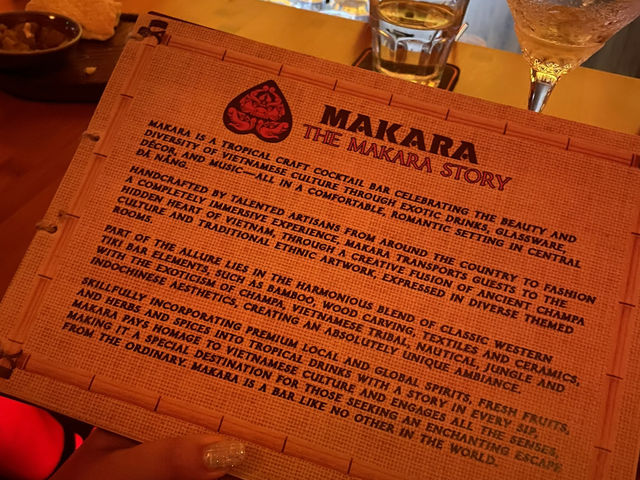 MAKARA
THE MAKARA STORY
MAKARA IS A TROPICAL CRAFT COCKTAIL BAR CELEBRATING THE BEAUTY AND
DIVERSITY OF VIETNAMESE CULTURE THROUGH EXOTIC DRINKS, GLASSWARE
DÉCOR, AND MUSIC—ALL IN A COMFORTABLE, ROMANTIC SETTING IN CENTRAL
ĐÀ NẴNG.
HANDCRAFTED BY TALENTED ARTISANS FROM AROUND THE COUNTRY TO FASHION
A COMPLETELY IMMERSIVE EXPERIENCE, MAKARA TRANSPORTS GUESTS TO THE
HIDDEN HEART OF VIETNAM, THROUGH A CREATIVE FUSION OF ANCIENT CHAMPA
CULTURE AND TRADITIONAL ETHNIC ARTWORK, EXPRESSED IN DIVERSE THEMED
ROOMS.
PART OF THE ALLURE LIES IN THE HARMONIOUS BLEND OF CLASSIC WESTERN
TIKI BAR ELEMENTS, SUCH AS BAMBOO, WOOD CARVING, TEXTILES AND CERAMICS,
WITH THE EXOTICISM OF CHAMPA, VIETNAMESE TRIBAL, NAUTICAL, JUNGLE AND
INDOCHINESE AESTHETICS, CREATING AN ABSOLUTELY UNIQUE AMBIANCE.
SKILLFULLY INCORPORATING PREMIUM LOCAL AND GLOBAL SPIRITS, FRESH FRUITS,
AND HERBS AND SPICES INTO TROPICAL DRINKS WITH A STORY IN EVERY SIP,
MAKARA PAYS HOMAGE TO VIETNAMESE CULTURE AND ENGAGES ALL THE SENSES,
MAKING IT A SPECIAL DESTINATION FOR THOSE SEEKING AN ENCHANTING ESCAPE
FROM THE ORDINARY. MAKARA IS A BAR LIKE NO OTHER IN THE WORLD.